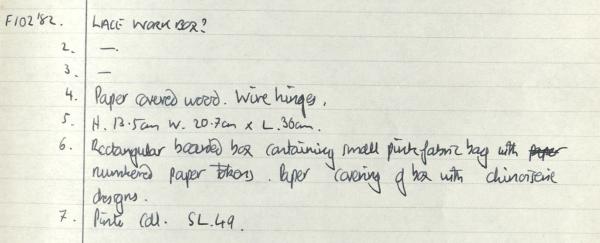 F102'82. LACE WORK BOX?
2. —.
3. —
4. Paper covered wood. Wire hinges.
5. H. 13.5cm W. 20.7cm x L. 30cm.
6. Rectangular boarded box containing small pink fabric bag with paper
numbered paper tokens. Paper covering of box with chinoiserie
designs.
7. Pinto Coll. SL.49.